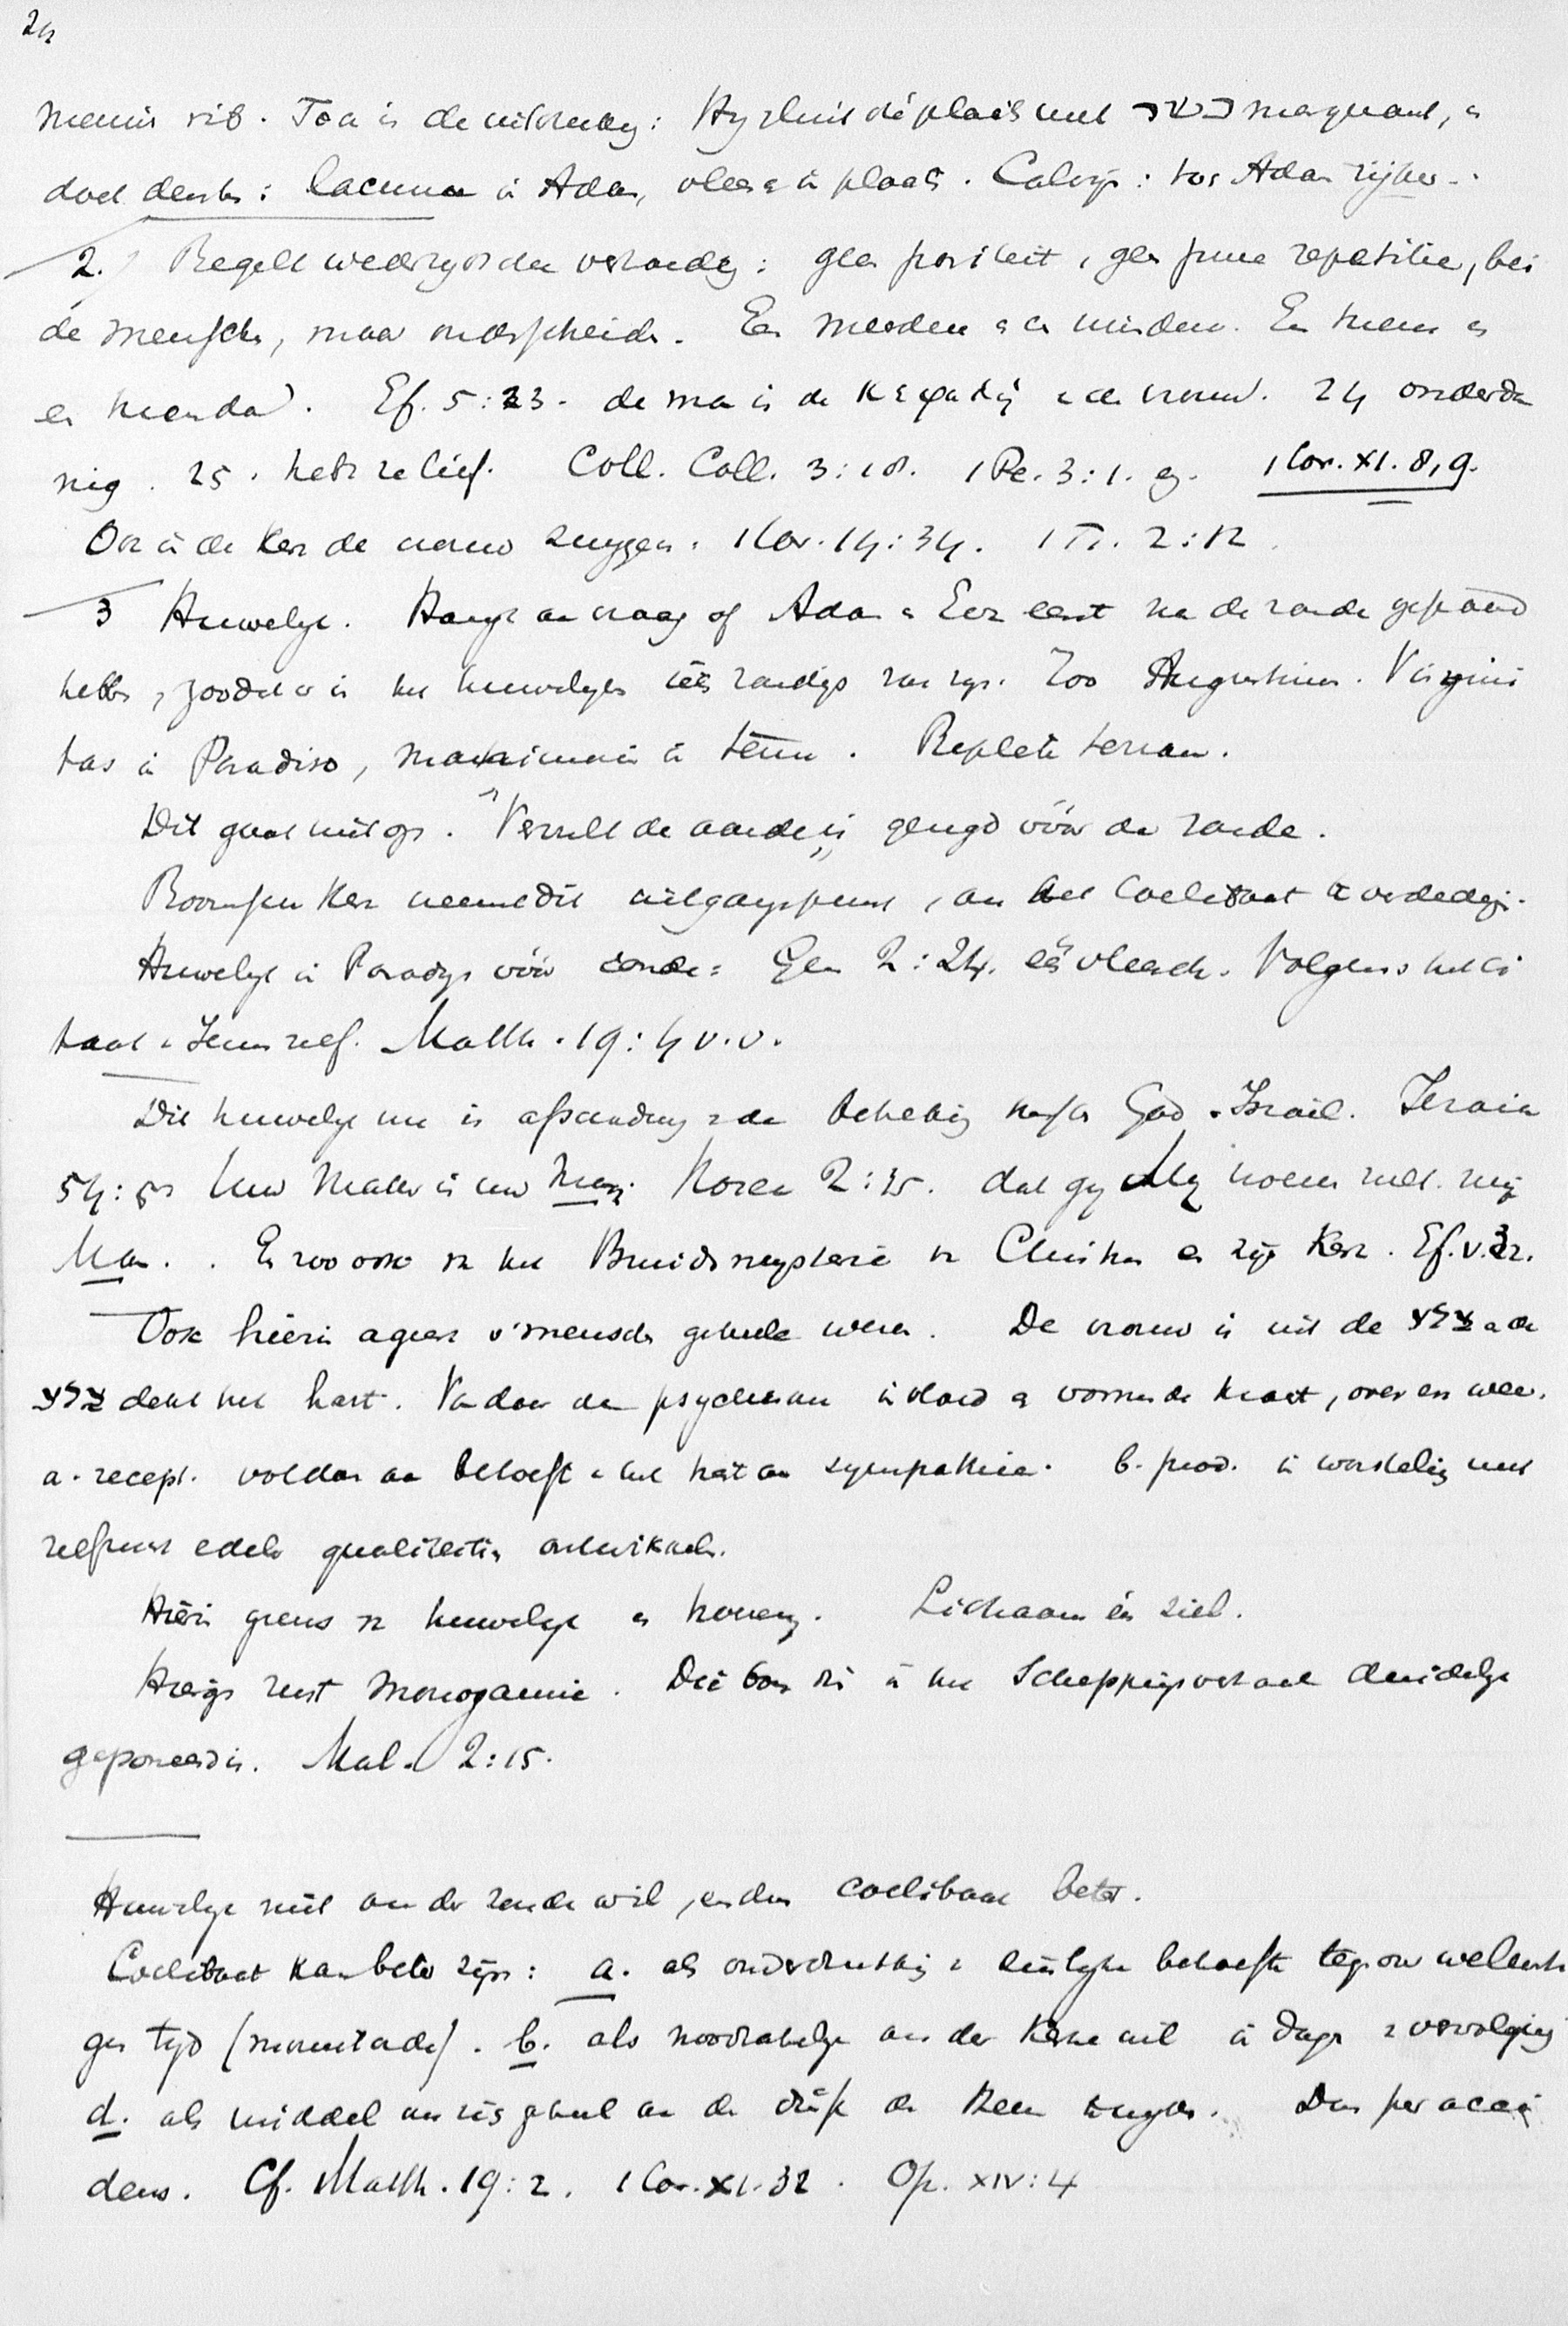 24
rib. Toch is de uitdrukking: Hy sluit de plaats met בשר , 
doet denken: lacuna in Adam, vleesch in plaats. Calvijn: Adam rijker.
2. Regelt wederzydsche verhouding: geen pariteit, geen pure repetitie, bei
de mensch, maar onderscheiden. Een meerdere en een mindere. Een 
en . Ef. 5:23. de man is de κεφαλή v de vrouw. 24 onderda
nig. 25. hebt ze lief. Coll. Coll. 3:18. 1 Pe. 3:1. 1 Cor. XI. 8,9.
Ook in de Kerk de vrouw zwygen. 1 Cor. 14:34. 1 Ti. 2:12.
3 Huwelyk. Hangt aan vraag of Adam en Eva eerst na de zonde gepaard
hebben, zoodat er in het huwelyk iets zondigs zou zyn. Zoo Augustinus. Virgini
tas in Paradiso, in terra. Replete terram.
Dit gaat niet op. "Vervult de aarde" is gezegd vóór de zonde.
Roomsche Kerk neemt dit uitgangspunt, om het Coelibaat te verdedigen.
Huwelyk in Paradys vóór zonde: Gen 2:24. één vleesch. Volgens het ci
taat v Jezus zelf. Matth. 19:4 v.v.
Dit huwelyk nu is afschaduwing v de betrekking tusschen God en Israël. Jesaia
54:5 Uw Maker is uw Man. Hosea 2:15. dat gy My noemen zult. mijn
Man. . En zoo ook v het Bruidsmysterie v Christus en zijn Kerk. Ef. V.32.
Ook hierin ageert v' mensch geheele wezen. De vrouw is uit de צלע en de
צלע dekt het hart. Vandaar de psychische invloed en vormende kracht, over en weer.
a. recept. voldoen aan behoefte v het hart aan sympathie. b. prod. in worsteling met
zelfzucht edele qualiteiten ontwikkelen.
Hierin grens v huwelyk en hoerery. Lichaam én ziel.
Hierop rust Monogamie. Die dan ook in het Scheppingsverhaal duidelyk
geponeerd is. Mal. 2:15.
Huwelyk niet om der zonde wil, en dus coelibaat beter.
Coelibaat kan beter zijn: a. als onderdrukking v zinlyke behoefte tegenover wellusti
gen tyd . b. als noodzakelyk om der Kerke wil in dagen v vervolging
d. als middel om zich geheel aan de dienst der Kerk te wyden. Dus per acci
dens. Cf. Matth. 19:2. 1 Cor. XI. 32. Op. XIV:4